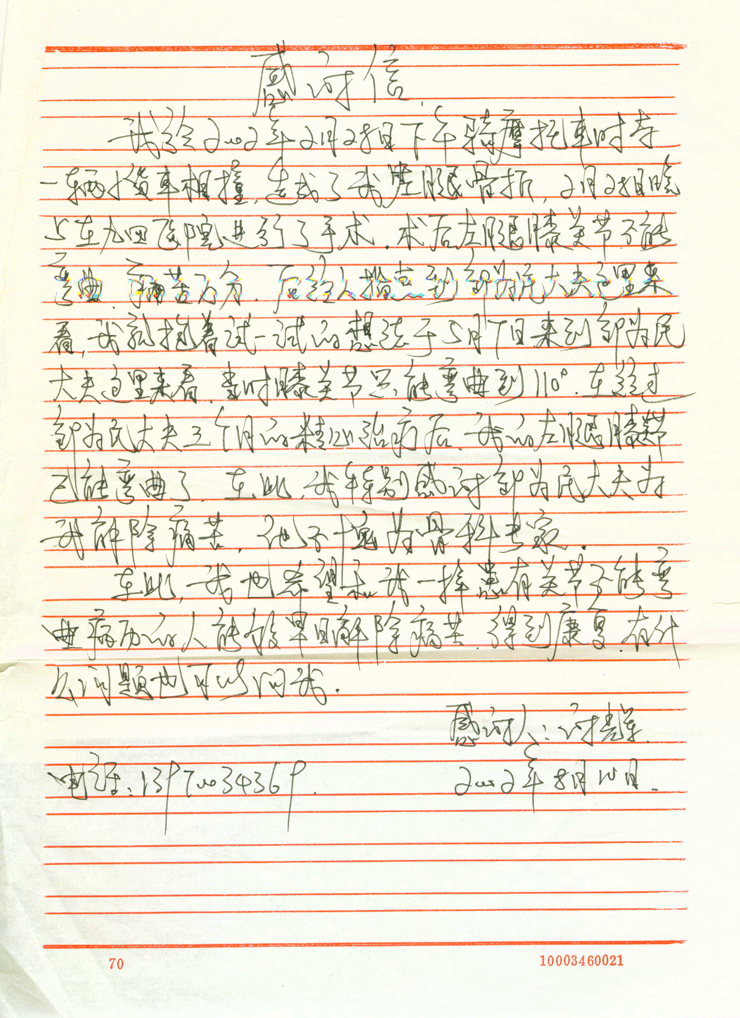 感谢信
我给2002年2月28日下午骑摩托车时与
一辆小货车相撞,造成了我左腿骨折,2月28日晚
上在九四医院进行了手术.术后左腿膝关节不能
弯曲.痛苦万分.后经人指点到邹为民大夫这里来
看,我就抱着试一试的想法于5月7日来到邹为民
大夫这里来看.当时膝关节只能弯曲到110°.在经过
邹为民大夫三个月的精心治疗后.我的左腿膝节
已能弯曲了.在此,我特别感谢邹为民大夫为
我解除痛苦,他不愧为骨科专家.
在此,我也希望和我一样患有关节不能弯
曲病历的人能够早日解除痛苦.得到康复.有什
么问题也可以问我.
感谢人:谢
电话:13970034369.
2002年8月10日.
70
10003460021